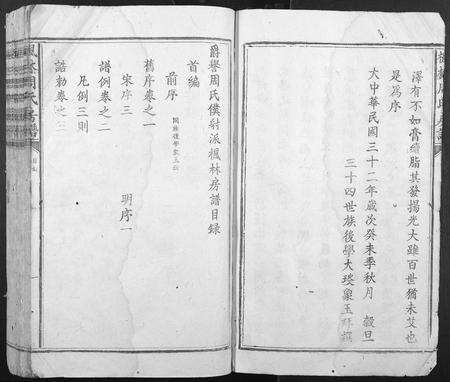 澤有不如膏續脂其發揚光大雖百世猶未艾也
是為序
大中華民國三十二年歲次癸未季秋月 穀旦
三十四世族後學大琰象玉拜撰
爵譽周氏僕射派楓林房譜目錄
首編
前序
舊序卷之一
宋序三 明序一
譜例卷之二
凡例三則
誥勅卷之三